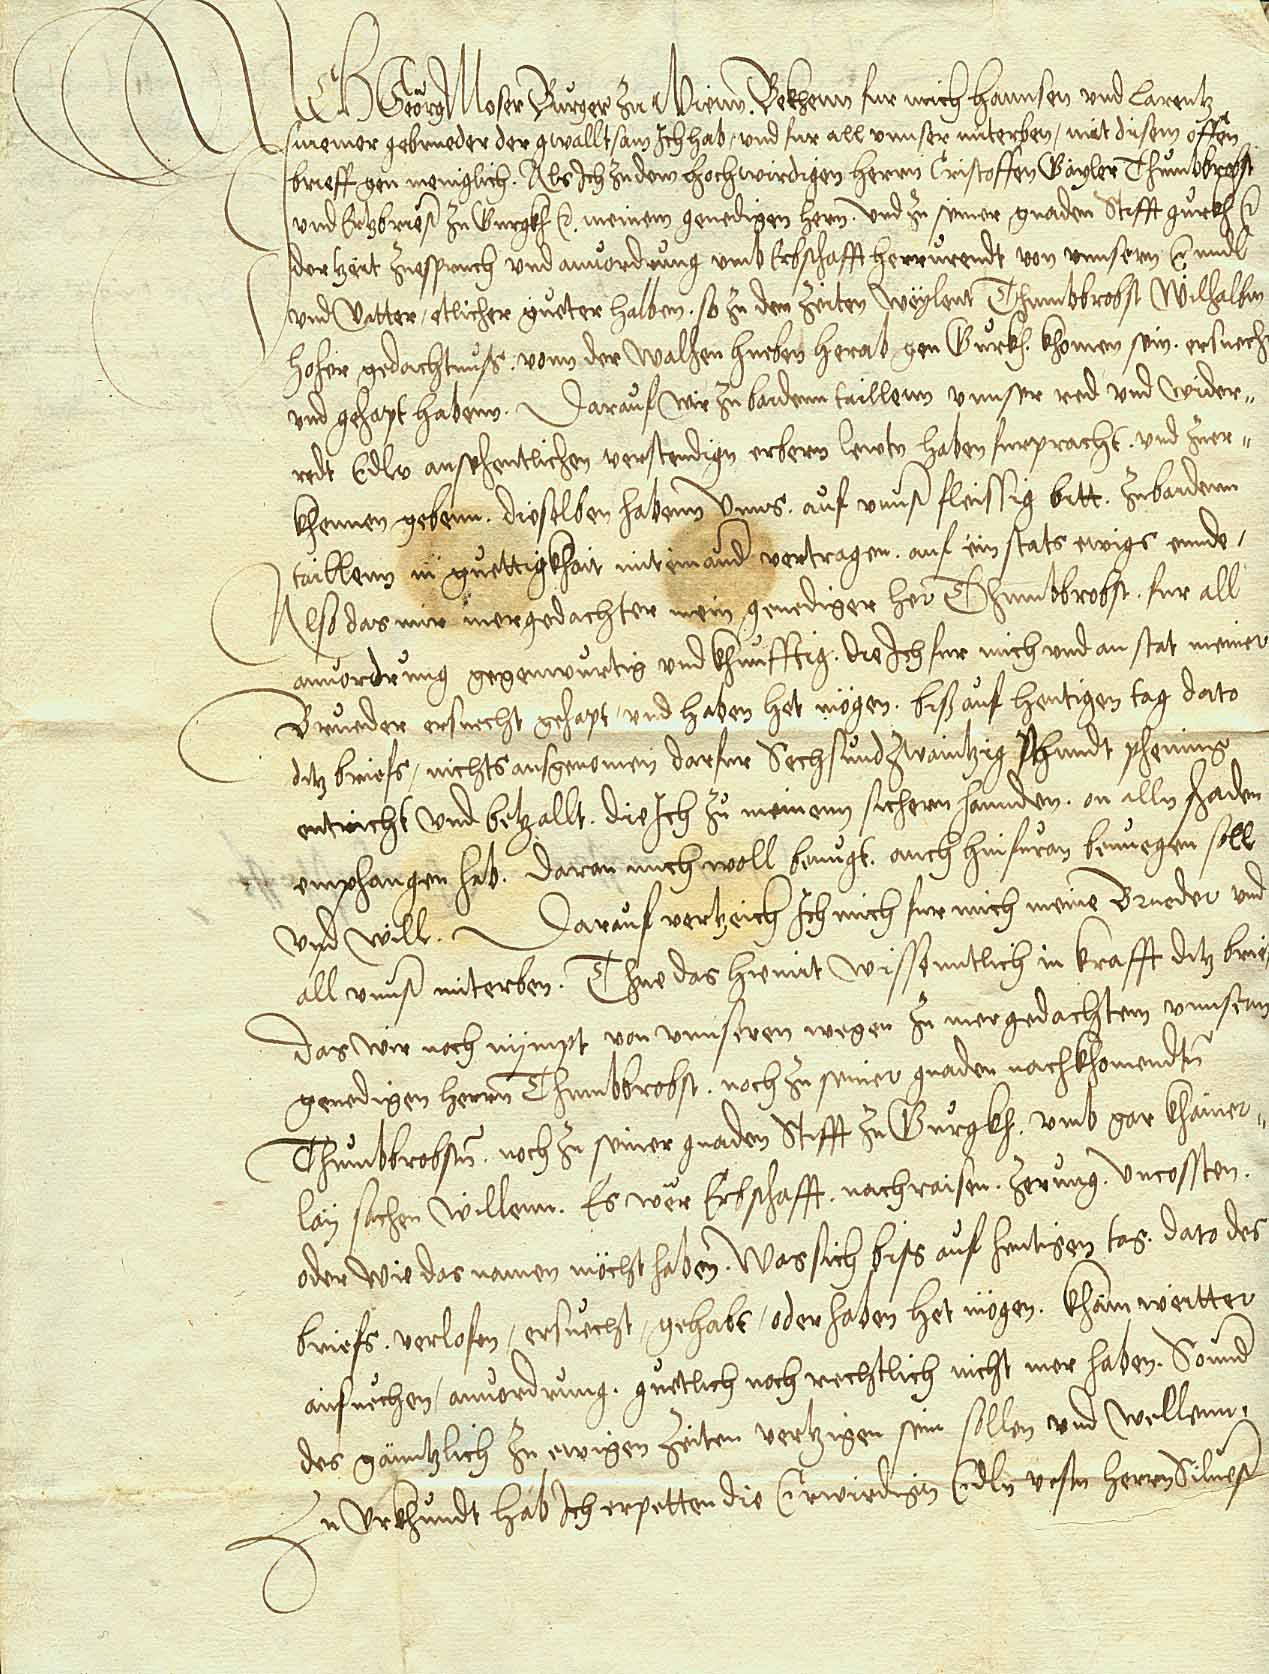 Ich Georg Moser Burger zu Wienn. Bekhenn fur mich Hannsen und Larentz
meiner gebrueder der gwalltsam Ich hab / und fur all unnser miterben / mit disem offen
brieff gen meniglich. Als Ich zu dem Hochwirdigen herrn Cristoffen Thumbbrobst
und Ertzbriest zu Gurgkh &. meinem genedigen hern. und zu seiner gnaden Stifft gurkh &
der tzeit zuespruch und anvordrung umb Erbschafft herrurendt von unnsern Enndl
und Vatter / etlicher gueter halben. so zu den Zeiten weylent Thumbbrobst Wilhalbm
hofer gedachtnuß. vonn der Walhen hueben herab gen Gurkh. khomen sein. ersuecht
und gehapt habenn. Darauf wir zu baidenn taillenn unnser red und wider-
redt Edln ansehentlichen verstendign erbern lewtn haben furpracht. und zuer-
khennen gebenn. dieselben habenn Unns. auf unnser fleissig bitt. zu baidenn
taillenn in guettigkhait miteinannd vertragen. auf ein stats ewigs ennde /
Also das mir mergedachter mein genediger her Thumbbrobst. fur all
anvordrung gegenwurtig und khunfftig. die Ich fur mich und an stat meiner
Brueder ersuecht gehapt / und haben het mögen. biß auf heutigen tag dato
ditz briefs / nichts ausgenomen darfur Sechsundzwaintzig Phundt phening
entricht und betzallt. die Ich zu meinenn sichern hannden. on alln schaden
emphangen hab. daran mich woll benugt. auch hinfuran benuegen soll
und will. Darauf vertzeich Ich mich fur mich meine Brueder und
all unnser miterben. Thue das hiemit wissenntlich in krafft ditz briefs
das wir noch nÿmpt von unnseren wegen zu mergedachtem unnserm
genedigen herrn Thumbbrobst. noch zu seiner gnaden nachkhomendtn
Thumbbrobstn. noch zu seiner gnaden Stifft zu Gurgkh. umb gar khainer-
laÿ sachen willenn. Es wer Erbschafft. nachraisen. Zerung. uncossten.
oder wie das namen möcht haben. Was sich biss auf heutigen tag. dato des
briefs. verlofen / ersuecht / gehabt / oder haben het mögen. khain weitter
ansuechen / anvordrung. guetlich noch rechtlich nicht mer haben. Sounder
des gänntzlich zu ewigen Zeiten vertzigen sein sollen und wellenn.
Zu Urkhundt hab Ich erpetten die Erwirdign Edln vestn herrn Silvester